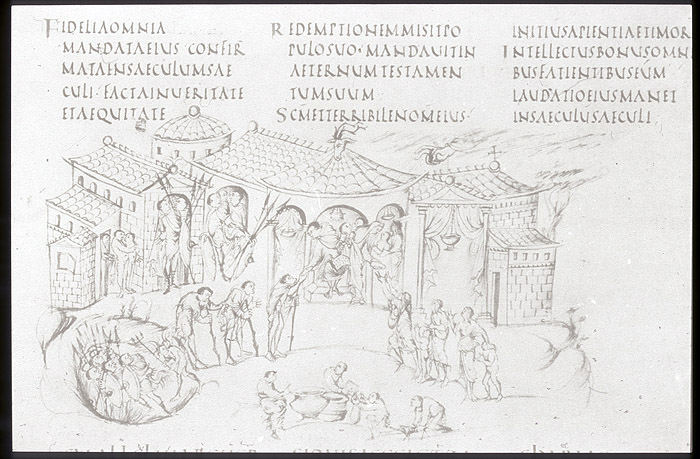 FIDELIAOMNIA
MANDATAEIUS CONFIR
MATAINSAECULUMSAE
CULI· FACTAINUERITATE
ETAEQUITATE
REDEMPTIONEMMISITPO
PULOSUO· MANDAVITIN
AETERNUMTESTAMEN
TUMSUUM
SC̄METTERRIBILENOM̄EIUS·
INITIUSAPIENTIAETIMOR
INTELLECTUSBONUSOMN
BUSFATIENTIBUSEŪM
LAUDATIOEIUSMANET
INSAECULUSAECULI·